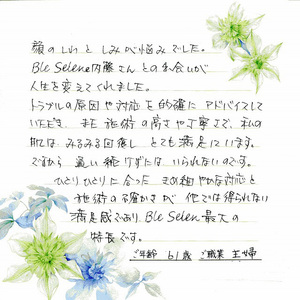 顔のしわとしみが悩みでした。
Ble Selene内藤さんとの出会いが
人生を変えてくれました。
トラブルの原因や対応を的確にアドバイスして
いただき、また施術の高さや丁寧さで、私の
肌は、みるみる回復しとても満足しています。
ですから 通い続けずにはいられないのです。
ひとりひとりに合ったきめ細やかな対応と
施術の確かさが 他では得られない
満足感であり Ble Selen 最大の
特長です。
ご年齢 61歳 ご職業 主婦